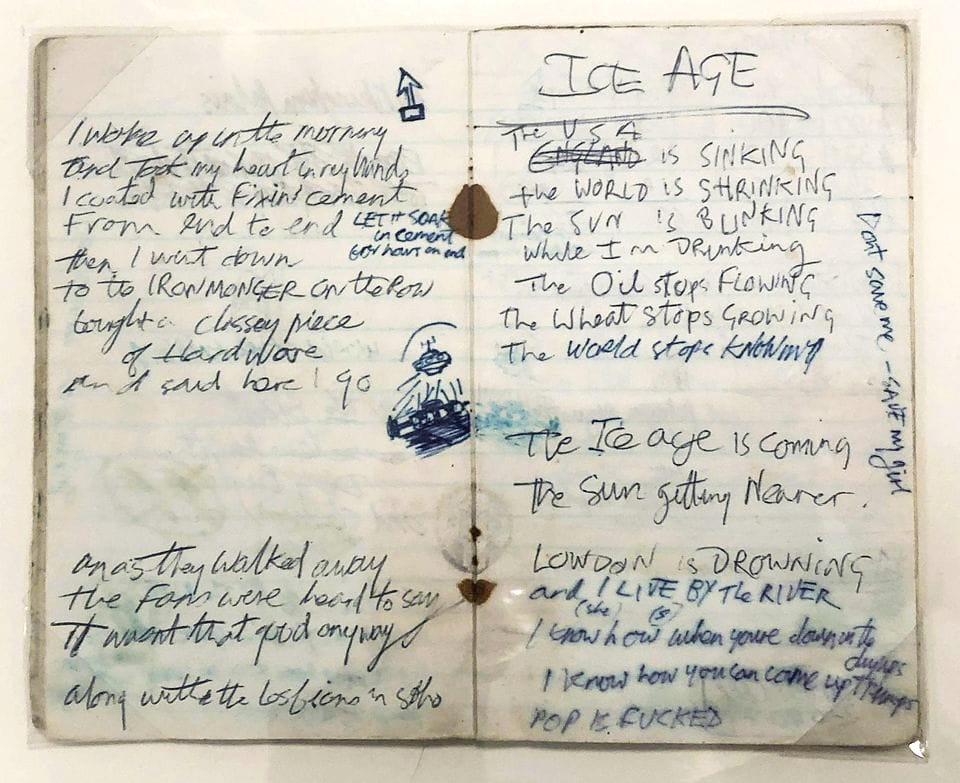 I woke up in the morning
and Took my heart in my hands
I coated with Fixin' cement
From end to end
LET IT SOAK
in cement
for hours on end
then I went down
to the IRONMONGER ON the Row
bought a classey piece
of Hardware
and I said here I go
an as they walked away
the fans were heard to say
It wasnt that good anyway
along with the lesbians in soho
ICE AGE
The USA
ENGLAND IS SINKING
the WORLD IS SHRINKING
The SUN IS BLINKING
while I'm DRUNKING
The Oil stops FLOWING
the Wheat stops GROWING
The World stops KNOWING
The Ice age is coming
The Sun getting Nearer.
LONDON is DROWNING
and I LIVE BY The RIVER
(she) (s)
I know how when youre down in the
dumps
I know how you can come up Trumps
POP IS FUCKED
Dont save me, - SAVE my girl